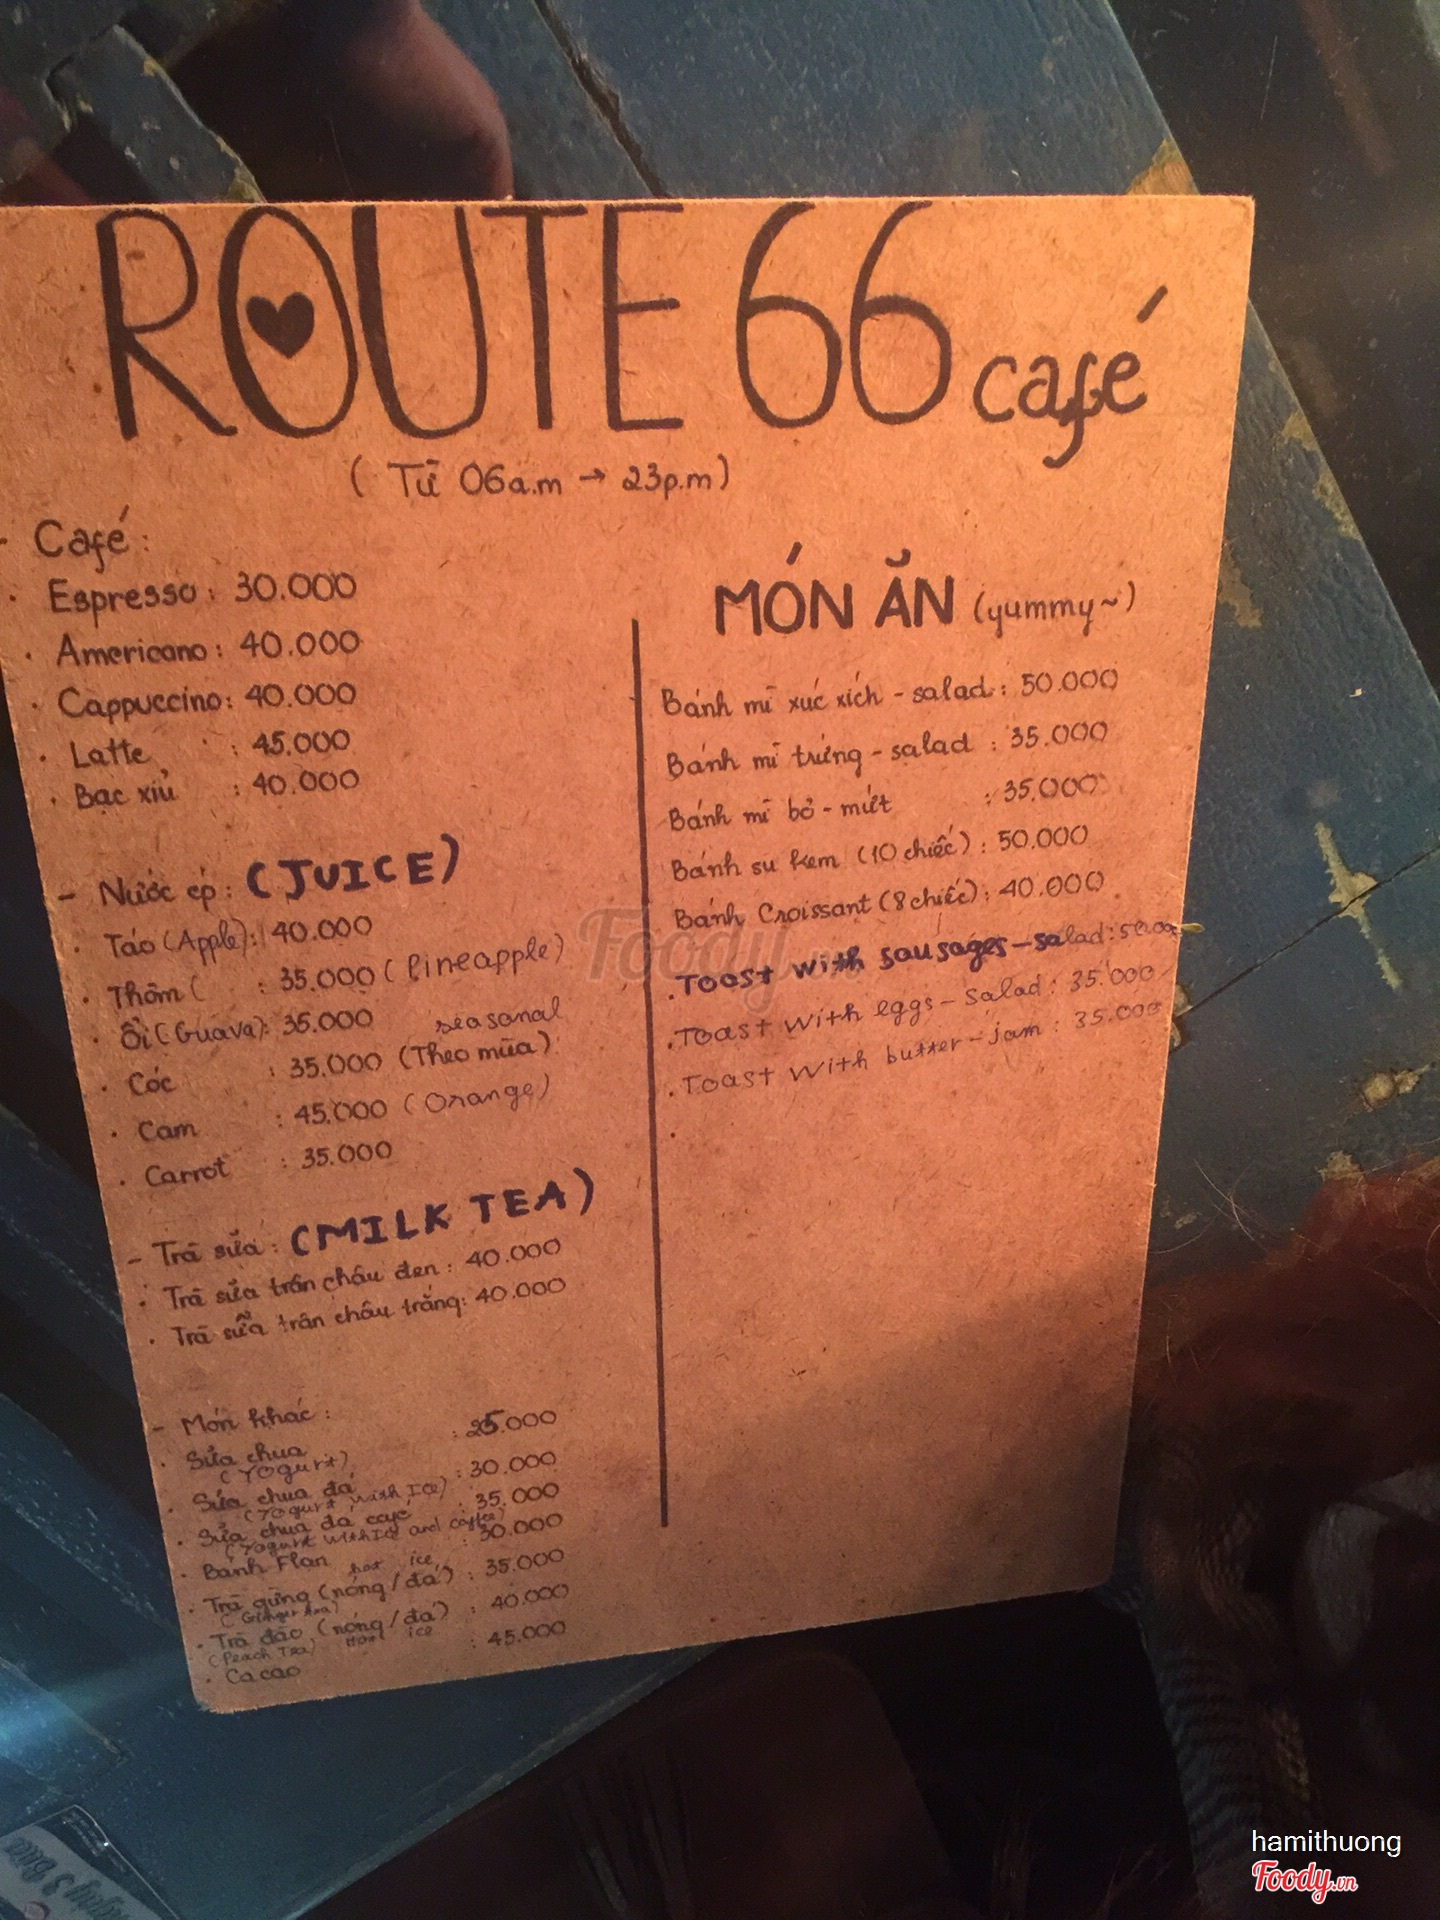 ROUTE 66 café
( Từ 06a.m → 23p.m )
- Café :
· Espresso : 30.000
· Americano : 40.000
· Cappuccino : 40.000
· Latte : 45.000
· Bạc xỉu : 40.000
- Nước ép : (JUICE)
· Táo (Apple) : 40.000
· Thơm ( : 35.000 ( Pineapple)
· Ổi (Guava) : 35.000
seasonal
· Cóc : 35.000 (Theo mùa)
· Cam : 45.000 ( Orange)
· Carrot : 35.000
- Trà sữa : (MILK TEA)
· Trà sữa trân châu đen : 40.000
· Trà sữa trân châu trắng : 40.000
- Món khác :
· Sữa chua : 25.000
( YOgurt)
· Sữa chua đá : 30.000
(YOgurt with ICe)
· Sữa chua đá café : 35.000
(Yogurt with ICe and coffee)
· Bánh Flan : 30.000
hot ice
· Trà gừng (nóng / đá) : 35.000
( Ginger tea)
· Trà đào (nóng / đá) : 40.000
(Peach Tea) ice
· Ca cao : 45.000
MÓN ĂN (yummy~)
Bánh mì xúc xích - salad : 50.000
Bánh mì trứng - salad : 35.000
Bánh mì bơ - mứt : 35.000
Bánh su kem (10 chiếc) : 50.000
Bánh Croissant (8 chiếc) : 40.000
. Toast with sausages - salad : 50.000
. Toast with eggs - Salad : 35.000
. Toast with butter - jam : 35.000
.
Foody.vn
hamithuong
Foody.vn